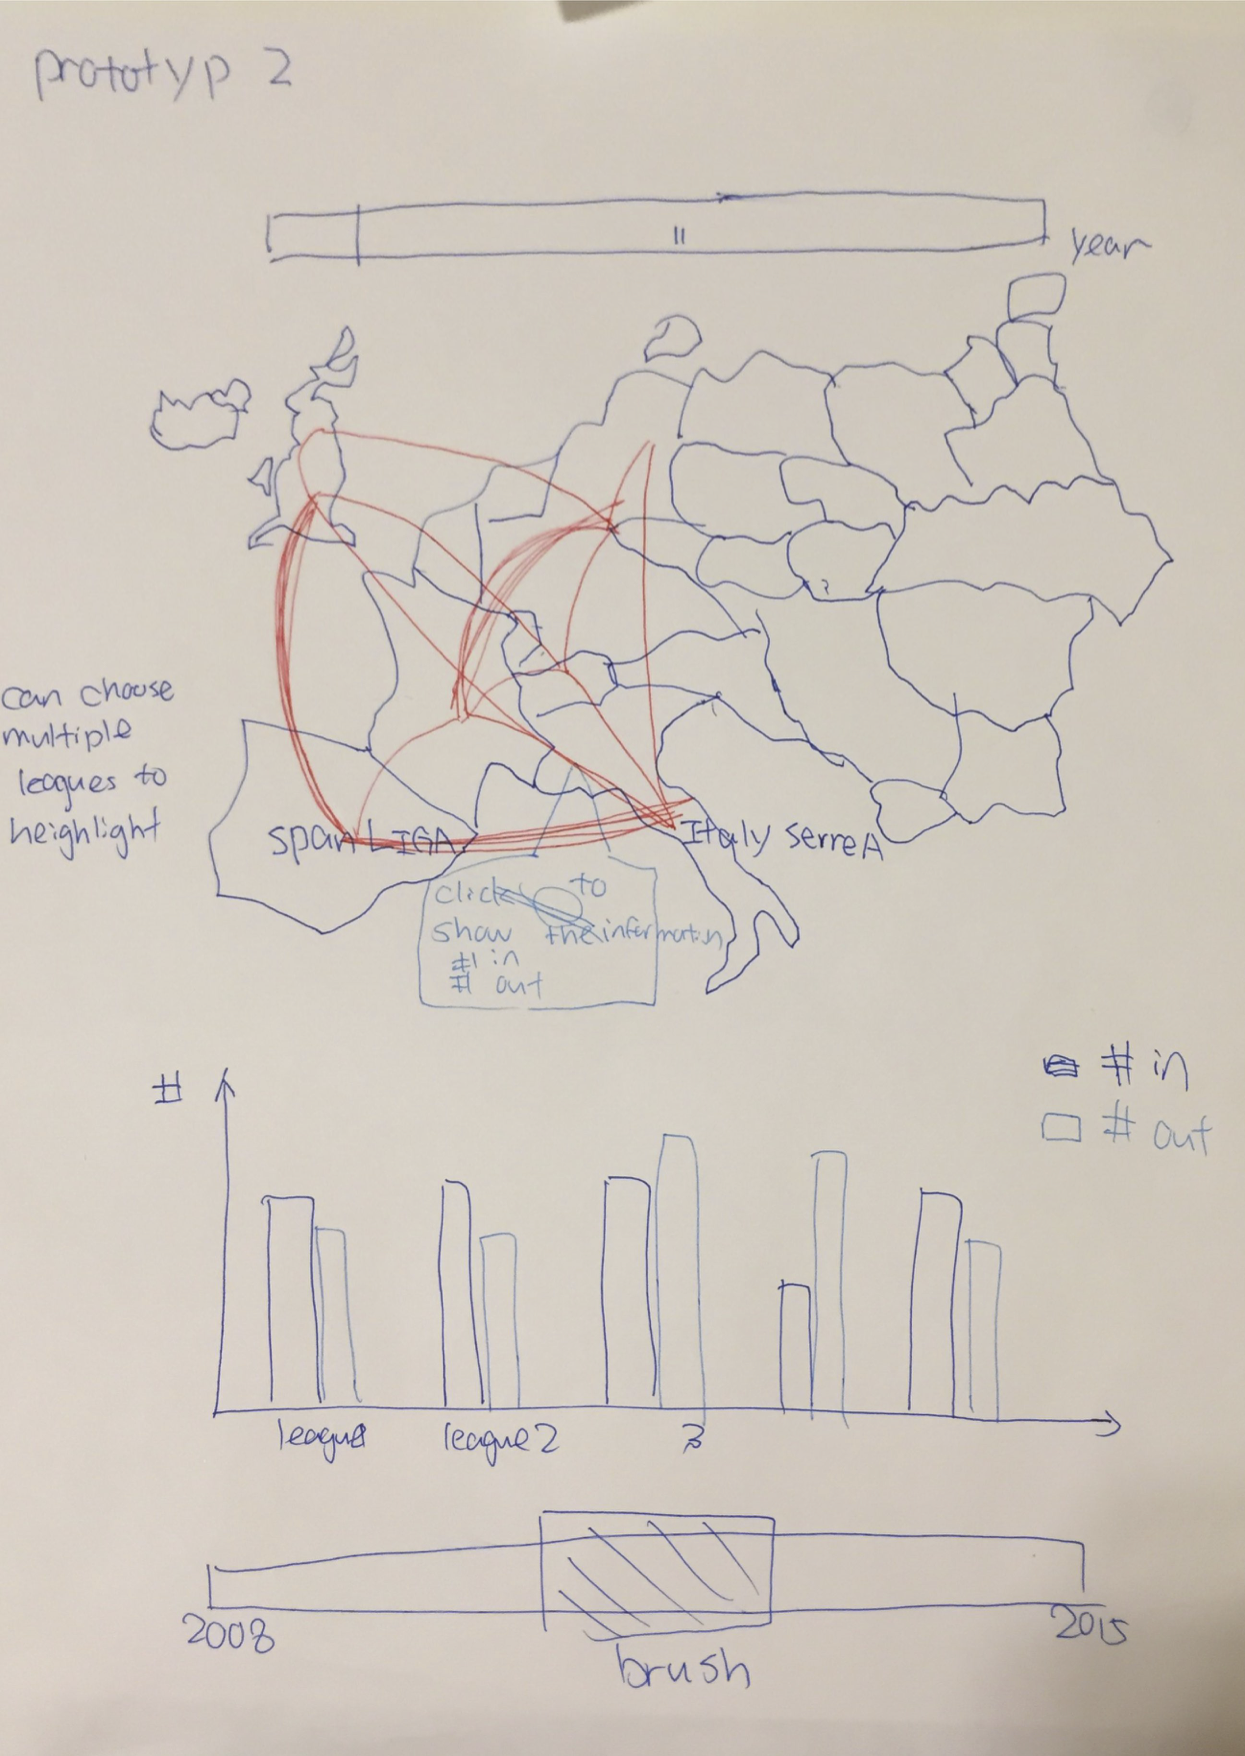 prototyp 2
year
can choose
multiple
leagues to
heighlight
span LIGA
Italy serreA
click to
show the information
# in
# out
#
# in
# out
league
league 2
3
2008
2015
brush